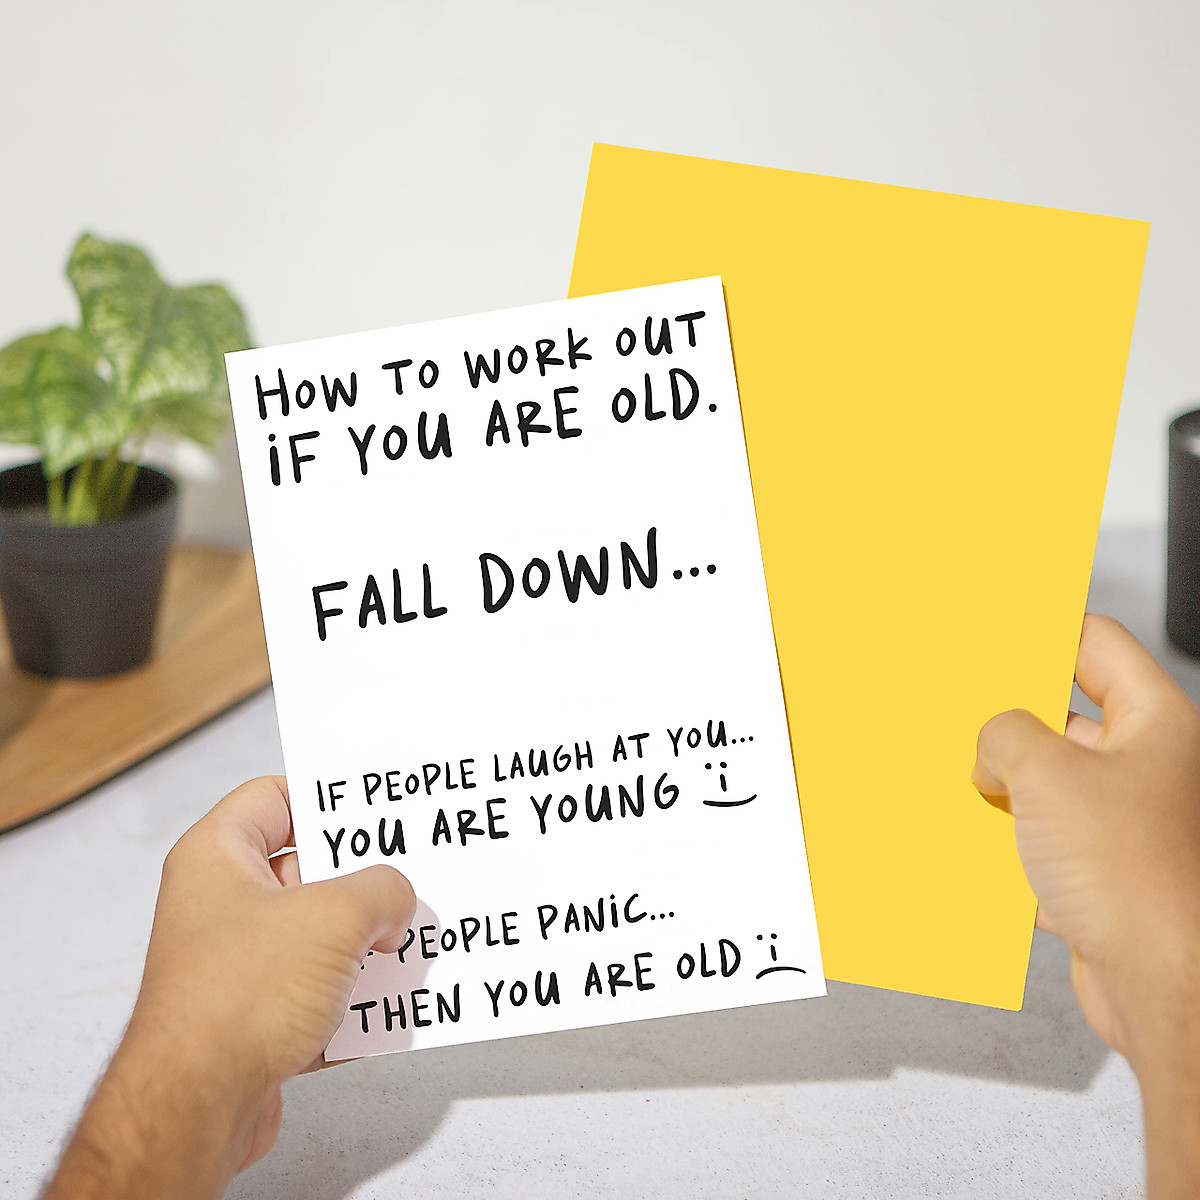 HOW TO WORK OUT
iF YOU ARE OLD.
FALL DOWN...
IF PEOPLE LAUGH AT YOU...
YOU ARE YOUNG
PEOPLE PANiC...
THEN YOU ARE OLD